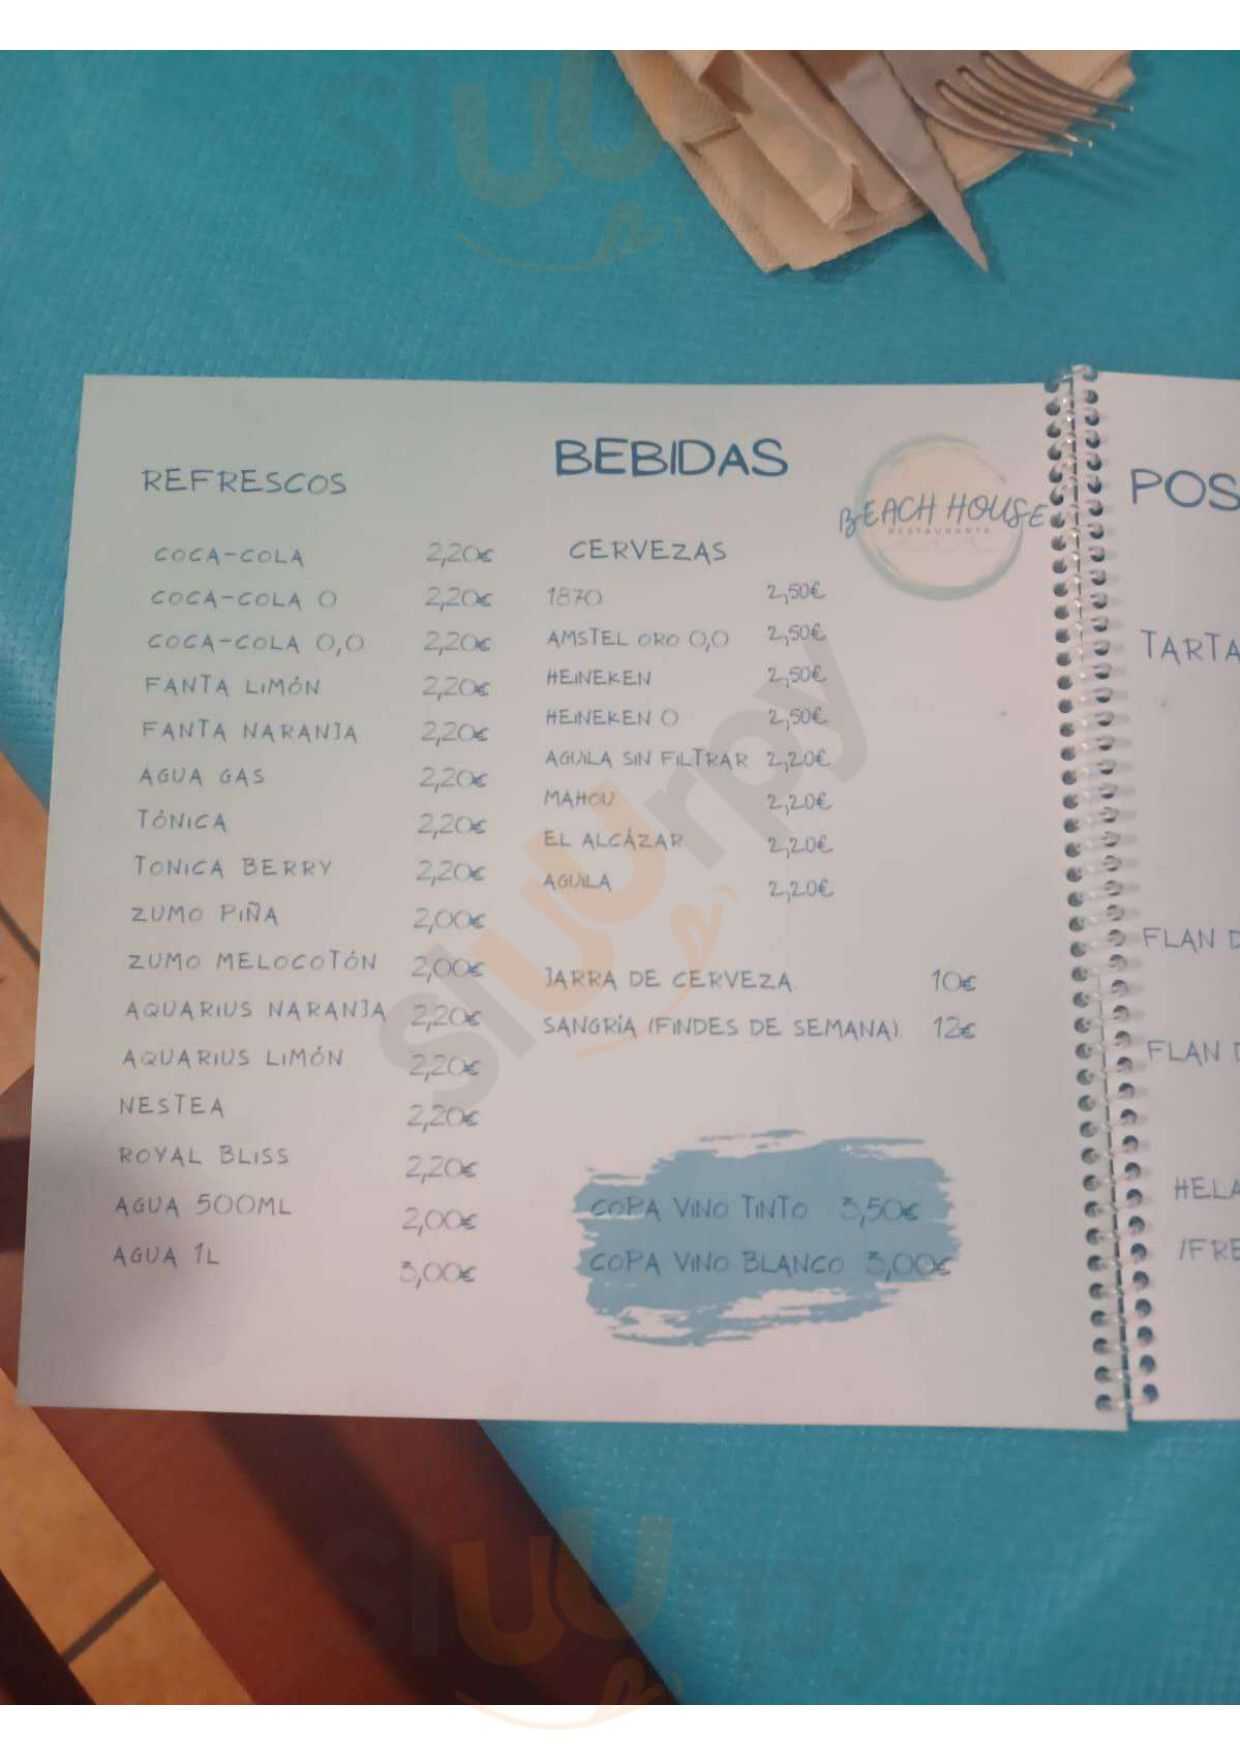 BEBIDAS
BEACH HOUSE
RESTAURANTE
REFRESCOS
COCA-COLA 2,20€
COCA-COLA 0 2,20€
COCA-COLA 0,0 2,20€
FANTA LIMÓN 2,20€
FANTA NARANJA 2,20€
AGUA GAS 2,20€
TÓNICA 2,20€
TONICA BERRY 2,20€
ZUMO PIÑA 2,00€
ZUMO MELOCOTÓN 2,00€
AQUARIUS NARANJA 2,20€
AQUARIUS LIMÓN 2,20€
NESTEA 2,20€
ROYAL BLISS 2,20€
AGUA 500ML 2,00€
AGUA 1L 3,00€
CERVEZAS
1870 2,50€
AMSTEL ORO 0,0 2,50€
HEINEKEN 2,50€
HEINEKEN 0 2,50€
AGUILA SIN FILTRAR 2,20€
MAHOU 2,20€
EL ALCÁZAR 2,20€
AGUILA 2,20€
JARRA DE CERVEZA 10€
SANGRÍA (FINDES DE SEMANA) 12€
COPA VINO TINTO 3,50€
COPA VINO BLANCO 3,00€
POS
TARTA
FLAN D
FLAN D
HELA
(FRE
sluurpy
sluurpy
sluurpy